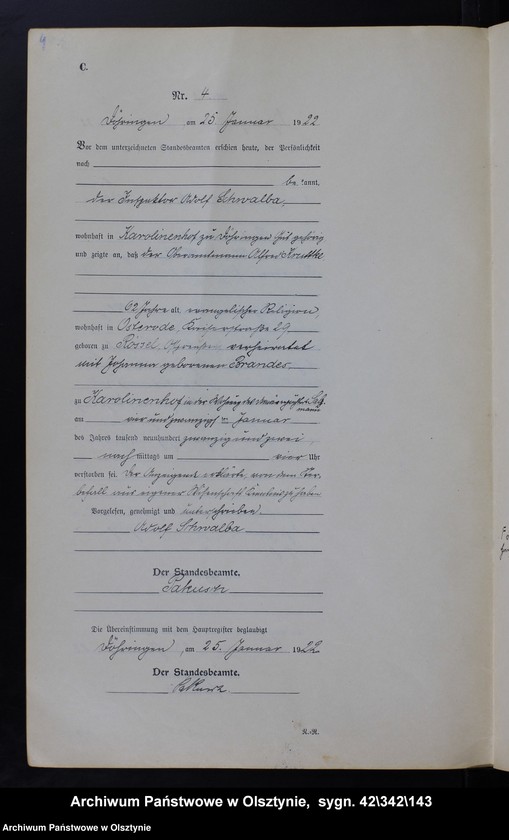 4
C.
Nr. 4
Döhringen am 25 Januar 1922
Vor dem unterzeichneten Standesbeamten erschien heute, der Persönlichkeit
nach
be kannt,
der Inspektor Adolf Schwalba,
wohnhaft in Karolinenhof zu Döhringen Gut gehörig
und zeigte an, daß der Oberamtmann Alfred
62 Jahre alt, evangelischer Religion,
wohnhaft in Osterode, Kaiserstraße 29,
geboren zu Rössel, Ostpreußen, verheiratet
mit Johanna geborenen Brandes
zu Karolinenhof in der Wohnung des
am vier und zwanzigsten Januar
des Jahres tausend neunhundert zwanzig und zwei
nach mittags um vier Uhr
verstorben sei. Der Anzeigende erklärte, von dem Ster-
befall aus eigener Wissenschaft Kenntnis zu haben
Vorgelesen, genehmigt und unterschrieben
Adolf Schwalba
Der Standesbeamte.
Die Übereinstimmung mit dem Hauptregister beglaubigt
Döhringen, am 25. Januar 1922
Der Standesbeamte.
Archiwum Państwowe w Olsztynie, sygn. 42\342\143
Archiwum Państwowe w Olsztynie